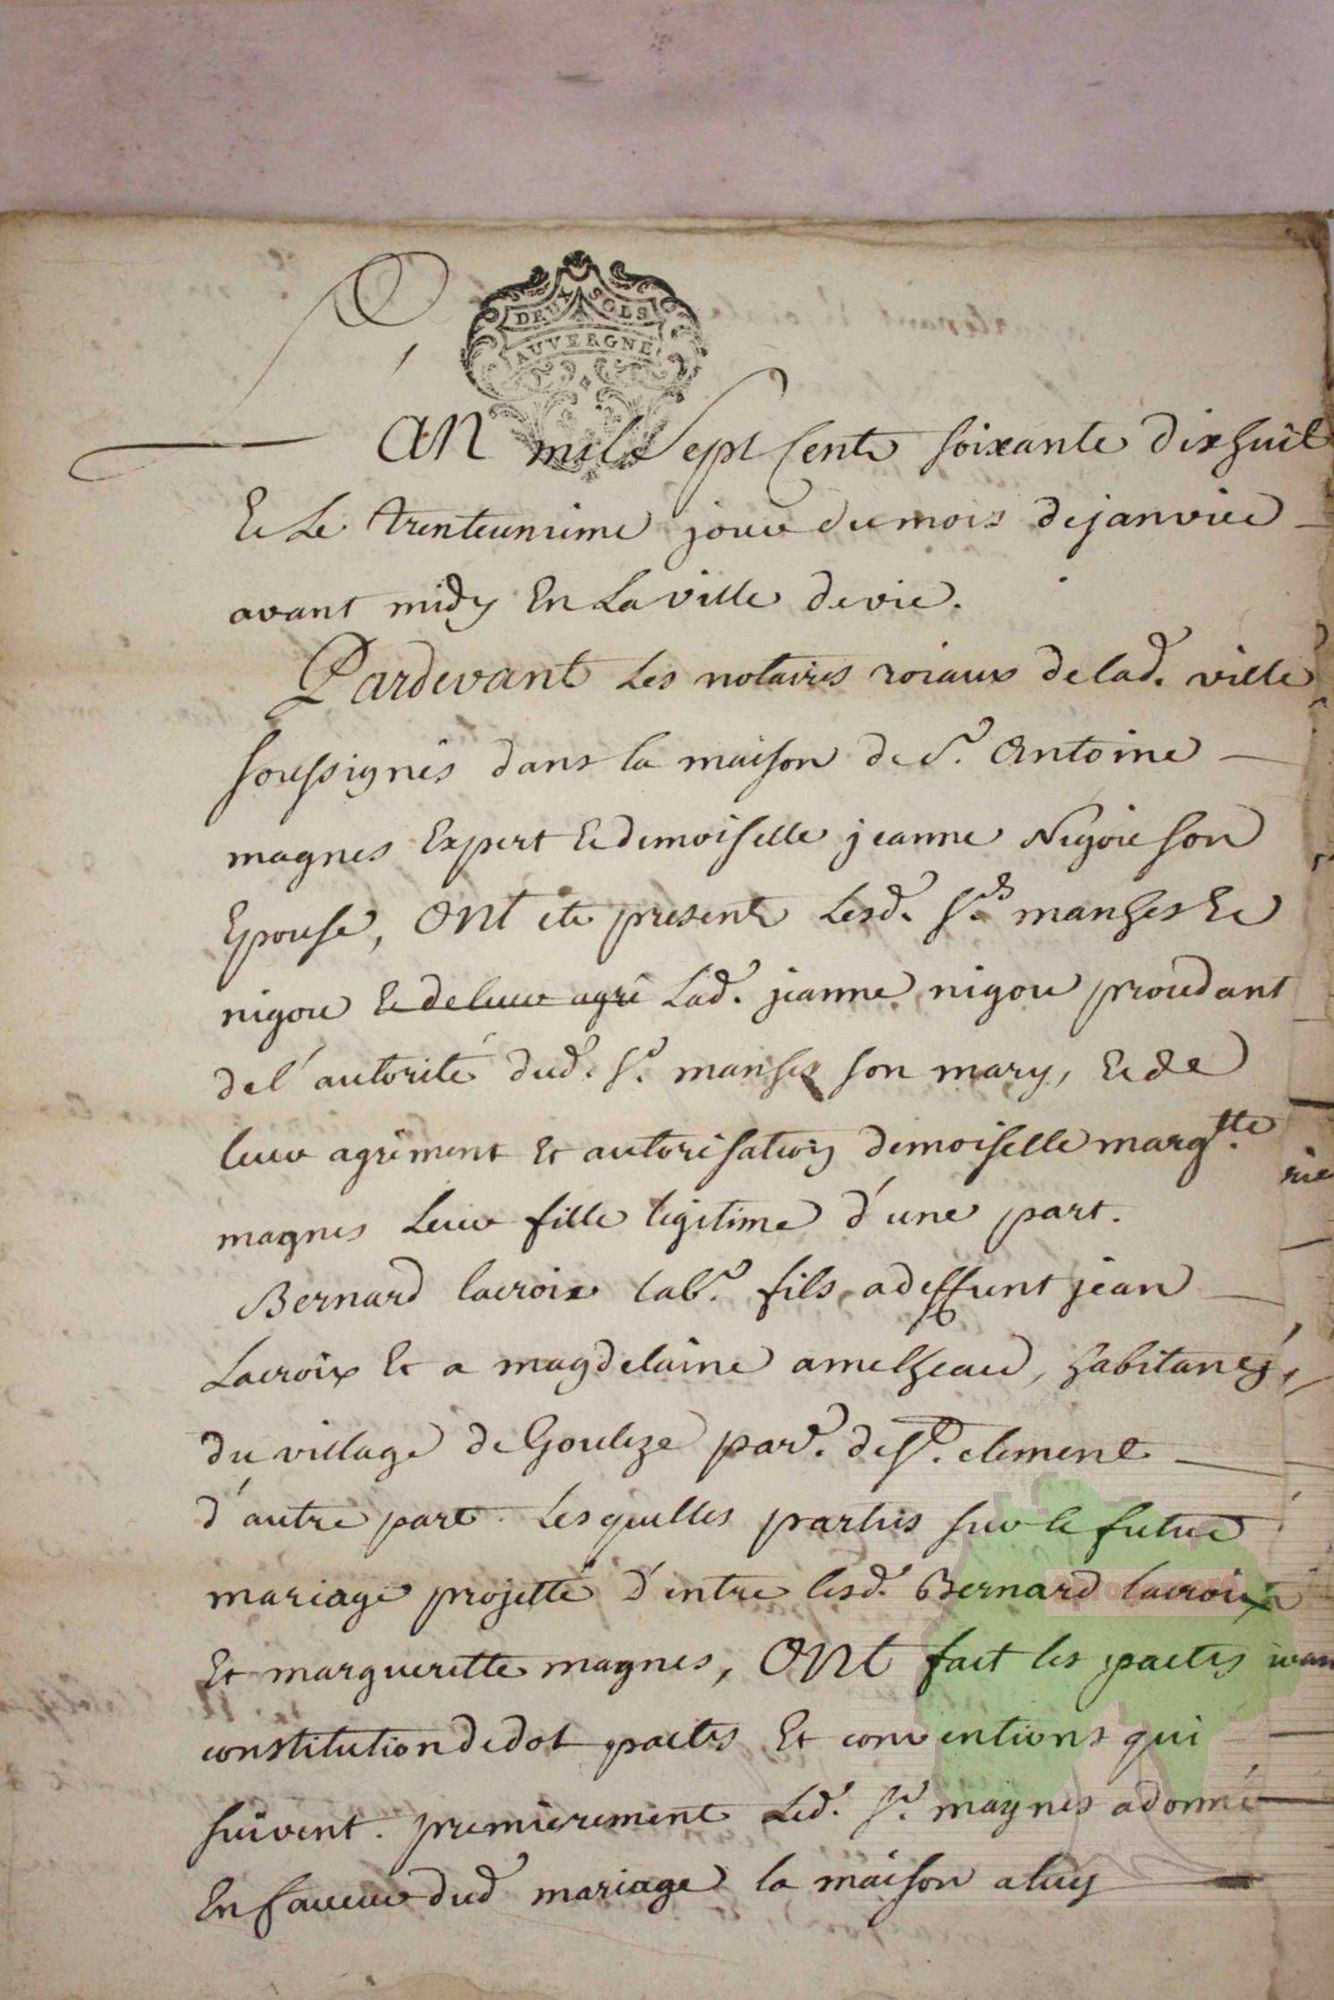 DEUX SOLS
AUVERGNE
L'AN mil sept cents soixante dixhuit
Et Le trenteunieme jour du mois de janvier
avant midy En La ville de vic.
Pardevant Les notaires roiaux de lad. ville
soussignés dans la maison de Sr. Antoine
magnes Expert Et demoiselle jeanne Nigou son
Epouse, ONt ete presents Lesd. Srs manhes Et
nigou Et de leur agré Lad. jeanne nigou
de l'autorité dud. Sr. manhes son mary, Et de
leur agrement Et autorisation demoiselle margtte.
magnes Leur fille legitime d'une part.
Bernard lacroix labr. fils a deffunt jean
Lacroix Et a magdelaine amelheau, habitants
du village de Gouleze par. de St. clement
d'autre part. Lesquelles parties sur le futur
mariage projetté d'entre lesd. Bernard lacroix
Et margueritte magnes, ONt fait les pactes
constitution de dot pactes Et conventions qui
suivent. premierement Led. Sr. magnes a donné
En faveur dud mariage la maison a luy